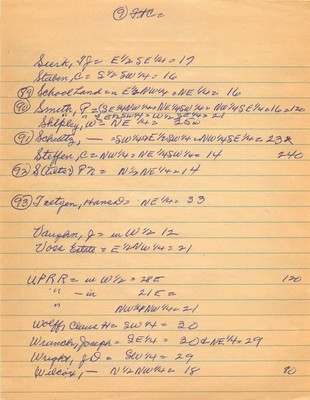 Surk, J = E½SE¼ = 17
Stuben, C = S½SW¼ = 16
(89) School Land = E½NW¼ = NE¼ = 16
(90) Smith, P = (SE¼NW¼ = NE¼SW¼ = NW¼SE¼ = 16 = 120
Shipley, W = NE¼ = 25W
(91) Schultz, — SW¼ = E½SW¼ = NW¼SE¼ = 23
Steffen, C = NW¼ = NE¼SW¼ = 14 240
(92) N½NE¼ = 14
(93) Tretgen, Hans D = NE¼ = 33
Vaughn, J = in W½ 12
Voss Estate = E½NW¼ = 21
UPRR = in W½ = 28E 120
" — in 21E =
" NW¼NW¼ = 21
Wolff, Claus H = SW¼ = 30
Wrunck, Joseph = SE¼ = 30 & NE¼ = 29
Wright, J D = SW¼ = 29
Wilcox, — N½NW¼ = 18 80